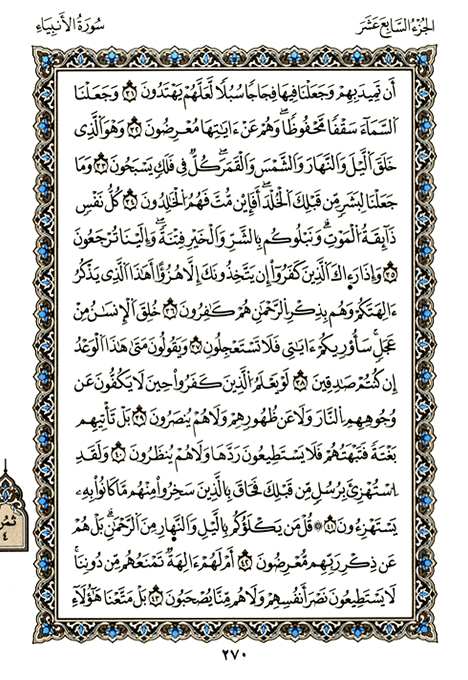 الجزء السابع عشر
سورة الأنبياء
أَن تَمِيدَ بِهِمْ وَجَعَلْنَا فِيهَا فِجَاجًا سُبُلًا لَّعَلَّهُمْ يَهْتَدُونَ ٣١ وَجَعَلْنَا
السَّمَآءَ سَقْفًا مَّحْفُوظًا ۖ وَهُمْ عَنْ ءَايَٰتِهَا مُعْرِضُونَ ٣٢ وَهُوَ الَّذِى
خَلَقَ الَّيْلَ وَالنَّهَارَ وَالشَّمْسَ وَالْقَمَرَ ۖ كُلٌّ فِى فَلَكٍ يَسْبَحُونَ ٣٣ وَمَا
جَعَلْنَا لِبَشَرٍ مِّن قَبْلِكَ الْخُلْدَ ۖ أَفَإِي۟ن مِّتَّ فَهُمُ الْخَٰلِدُونَ ٣٤ كُلُّ نَفْسٍ
ذَآئِقَةُ الْمَوْتِ ۗ وَنَبْلُوكُم بِالشَّرِّ وَالْخَيْرِ فِتْنَةً ۖ وَإِلَيْنَا تُرْجَعُونَ
٣٥ وَإِذَا رَءَاكَ الَّذِينَ كَفَرُوٓا۟ إِن يَتَّخِذُونَكَ إِلَّا هُزُوًا أَهَٰذَا الَّذِى يَذْكُرُ
ءَالِهَتَكُمْ وَهُم بِذِكْرِ الرَّحْمَٰنِ هُمْ كَٰفِرُونَ ٣٦ خُلِقَ الْإِنسَٰنُ مِنْ
عَجَلٍ ۚ سَأُو۟رِيكُمْ ءَايَٰتِى فَلَا تَسْتَعْجِلُونِ ٣٧ وَيَقُولُونَ مَتَىٰ هَٰذَا الْوَعْدُ
إِن كُنتُمْ صَٰدِقِينَ ٣٨ لَوْ يَعْلَمُ الَّذِينَ كَفَرُوا۟ حِينَ لَا يَكُفُّونَ عَن
وُجُوهِهِمُ النَّارَ وَلَا عَن ظُهُورِهِمْ وَلَا هُمْ يُنصَرُونَ ٣٩ بَلْ تَأْتِيهِم
بَغْتَةً فَتَبْهَتُهُمْ فَلَا يَسْتَطِيعُونَ رَدَّهَا وَلَا هُمْ يُنظَرُونَ ٤٠ وَلَقَدِ
اسْتُهْزِئَ بِرُسُلٍ مِّن قَبْلِكَ فَحَاقَ بِالَّذِينَ سَخِرُوا۟ مِنْهُم مَّا كَانُوا۟ بِهِۦ
يَسْتَهْزِءُونَ ٤١ ۞ قُلْ مَن يَكْلَؤُكُم بِالَّيْلِ وَالنَّهَارِ مِنَ الرَّحْمَٰنِ ۗ بَلْ هُمْ
عَن ذِكْرِ رَبِّهِم مُّعْرِضُونَ ٤٢ أَمْ لَهُمْ ءَالِهَةٌ تَمْنَعُهُم مِّن دُونِنَا ۚ
لَا يَسْتَطِيعُونَ نَصْرَ أَنفُسِهِمْ وَلَا هُم مِّنَّا يُصْحَبُونَ ٤٣ بَلْ مَتَّعْنَا هَٰٓؤُلَآءِ
٢٧٠
٤